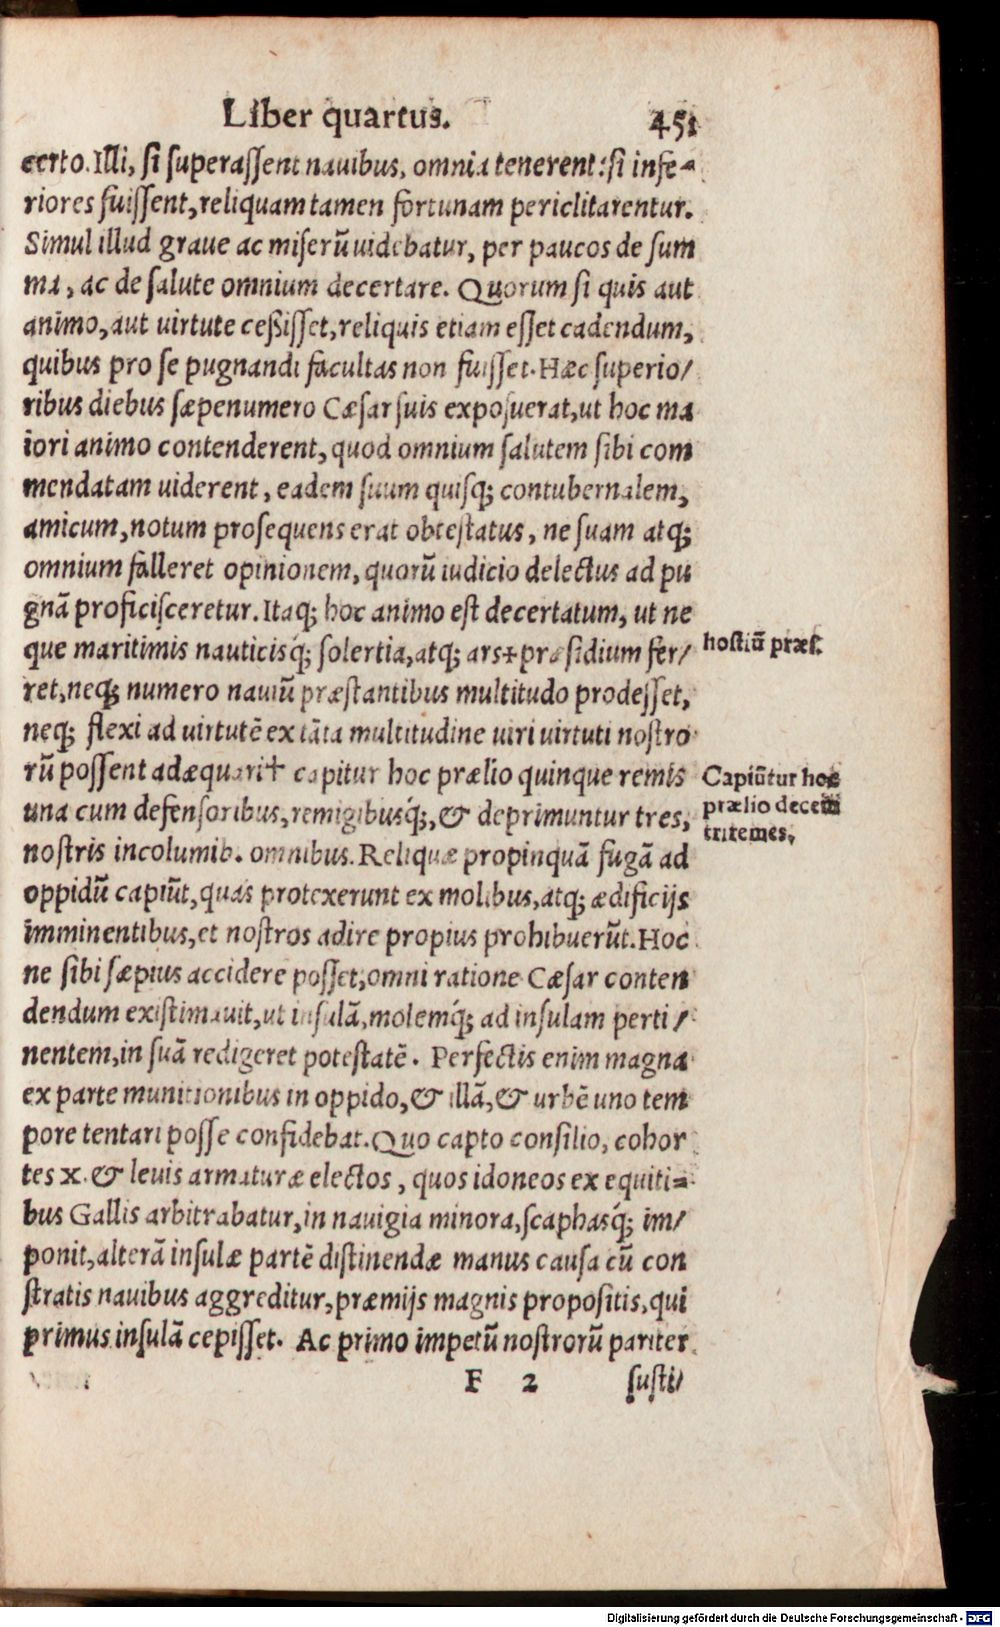 Liber quartus. 451
certo. Illi, ſi ſuperaſſent nauibus, omnia tenerent: ſi infe-
riores fuiſſent, reliquam tamen fortunam periclitarentur.
Simul illud graue ac miſerū uidebatur, per paucos de ſum
ma, ac de ſalute omnium decertare. Quorum ſi quis aut
animo, aut uirtute ceßiſſet, reliquis etiam eſſet cadendum,
quibus pro ſe pugnandi facultas non fuiſſet. Hæc ſuperio/
ribus diebus ſæpenumero Cæſar ſuis expoſuerat, ut hoc ma
iori animo contenderent, quod omnium ſalutem ſibi com
mendatam uiderent, eadem ſuum quiſq; contubernalem,
amicum, notum proſequens erat obteſtatus, ne ſuam atq;
omnium falleret opinionem, quorū iudicio delectus ad pu
gnā proficiſceretur. Itaq; hoc animo eſt decertatum, ut ne
que maritimis nauticisq́; ſolertia, atq; ars+præſidium fer/
ret, neq; numero nauiū præſtantibus multitudo prodeſſet,
neq; flexi ad uirtutē ex tāta multitudine uiri uirtuti noſtro
rū poſſent adæquari† capitur hoc prælio quinque remis
una cum defenſoribus, remigibusq́;, & deprimuntur tres,
noſtris incolumib. omnibus. Reliquæ propinquā fugā ad
oppidū capiūt, quas protexerunt ex molibus, atq; ædificijs
imminentibus, et noſtros adire propius prohibuerūt. Hoc
ne ſibi ſæpius accidere poſſet, omni ratione Cæſar conten
dendum exiſtimauit, ut inſulā, molemq́; ad inſulam perti/
nentem, in ſuā redigeret poteſtatē. Perfectis enim magna
ex parte munitionibus in oppido, & illā, & urbē uno tem
pore tentari poſſe confidebat. Quo capto conſilio, cohor
tes x. & leuis armaturæ electos, quos idoneos ex equiti-
bus Gallis arbitrabatur, in nauigia minora, ſcaphasq́; im/
ponit, alterā inſulæ partē diſtinendæ manus cauſa cū con
ſtratis nauibus aggreditur, præmijs magnis propoſitis, qui
primus inſulā cepiſſet. Ac primo impetū noſtrorū pariter
F 2 ſuſti/
hoſtiū præſ.
Capiūtur hoc
prælio decem
triremes,
Digitalisierung gefördert durch die Deutsche Forschungsgemeinschaft - DFG